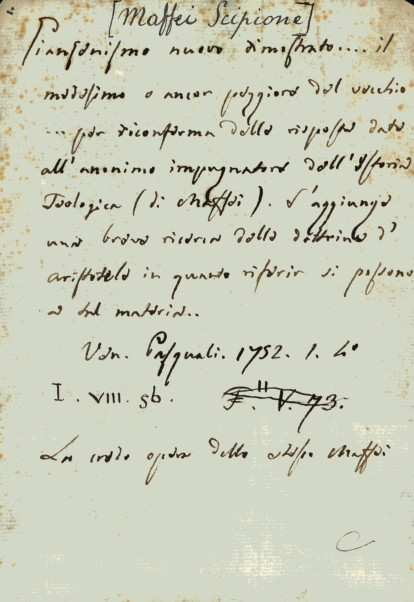 [Maffei Scipione]
Giansenismo nuovo dimostrato.... il
medesimo o ancor peggiore del vecchio
... per riconferma della risposta data
all'anonimo impugnatore dell'Istoria
Teologica (di Maffei). S'aggiunge
una breve ricerca della dottrina d'
Aristotele in quanto riferir si possono
a tal materia..
Ven. Pasquali. 1752. 1. 4º
I. VIII. 56.
F. V. 73.
La credo opera dello stesso Maffei
C